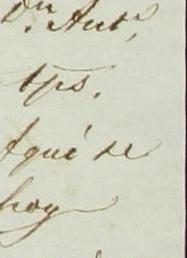 Dn. Antº,
tps.
Aquí se
hoy